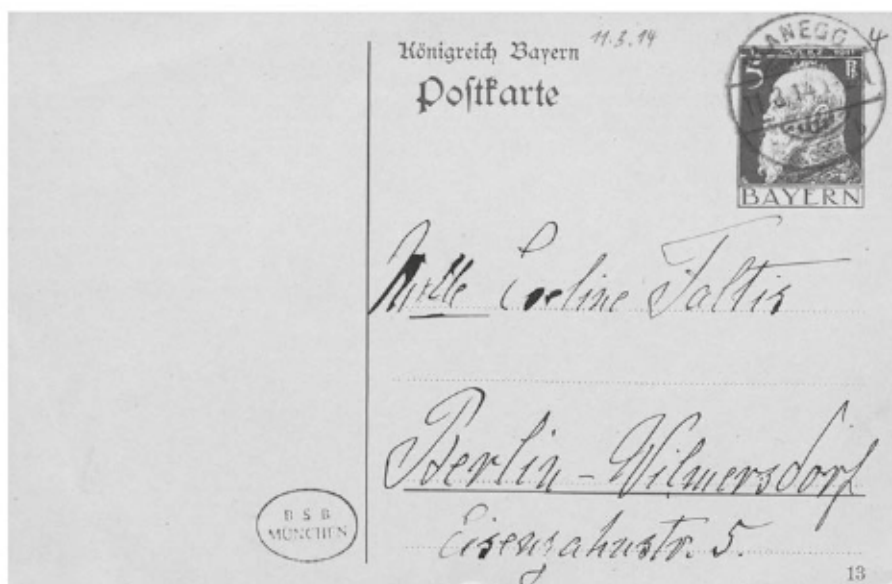 11.3.14
Königreich Bayern
Postkarte
ANEGG
4
5
BAYERN
Mlle Eveline Faltis
Berlin-Wilmersdorf
Eisenzahnstr. 5.
B S B
MÜNCHEN
13